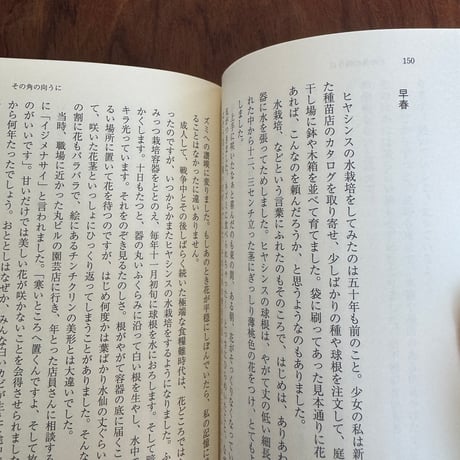 150
早春
ヒヤシンスの水栽培をしてみたのは五十年も前のこと。少女の私は新
た種苗店のカタログを取り寄せ、少しばかりの種や球根を注文して、庭
干し場に鉢や木箱を並べて育てました。袋に刷ってあった見本通りに花
あれば、こんなのを頼んだろうか、と思うようなのもありました。
水栽培、などという言葉にふれたのもそのころで、はじめは、ありあわ
器に水を張ってためしました。ヒヤシンスの球根は、やがて丈の低い細長
れた中から十二、三センチ立った茎にぎっしり薄桃色の花をつけ、とても
上手に咲いたなあと喜んだのも束の間、ある朝、花がそっくりなくなって
その角の向うに
ズミへの讃嘆に変りました。もしあのとき花が平穏にしぼんでいたら、私の記憶に
ることはなかったに違いありません。
成人して、戦争中とその後しばらく続いた極端な食糧難時代は、花どころでは
ったのですが、いつからかまたヒヤシンスの水栽培をするようになりました。ふ
みつ栽培容器をととのえ、毎年十一月初旬に球根を水におろします。そして
かくします。十日もたつと、器の丸いふくらみに沿って白い根を生やし、水中
キラ光っています。それをのぞき見るたのしさ。根がやがて容器の底に届くこ
場所に置いて花を待つのですが、はじめ何度かは葉ばかり水仙の丈ぐらい
て、咲いた花茎といっしょにひっくり返ってしまうことがありました。
の割に花もバラバラで、絵にあるチンチクリンの美形とは大違いでした。そんな
当時、職場に近かった丸ビルの園芸店に行き、年とった店員さんに相談する
に「イジメナサイ」と言われました。「寒いところへ置くんですよ、そして
のがいいです」甘いだけでは美しい花が咲かないことを会得させられました
から何年たったでしょう。おととしはなぜか、みんな白いカビが生えて途中